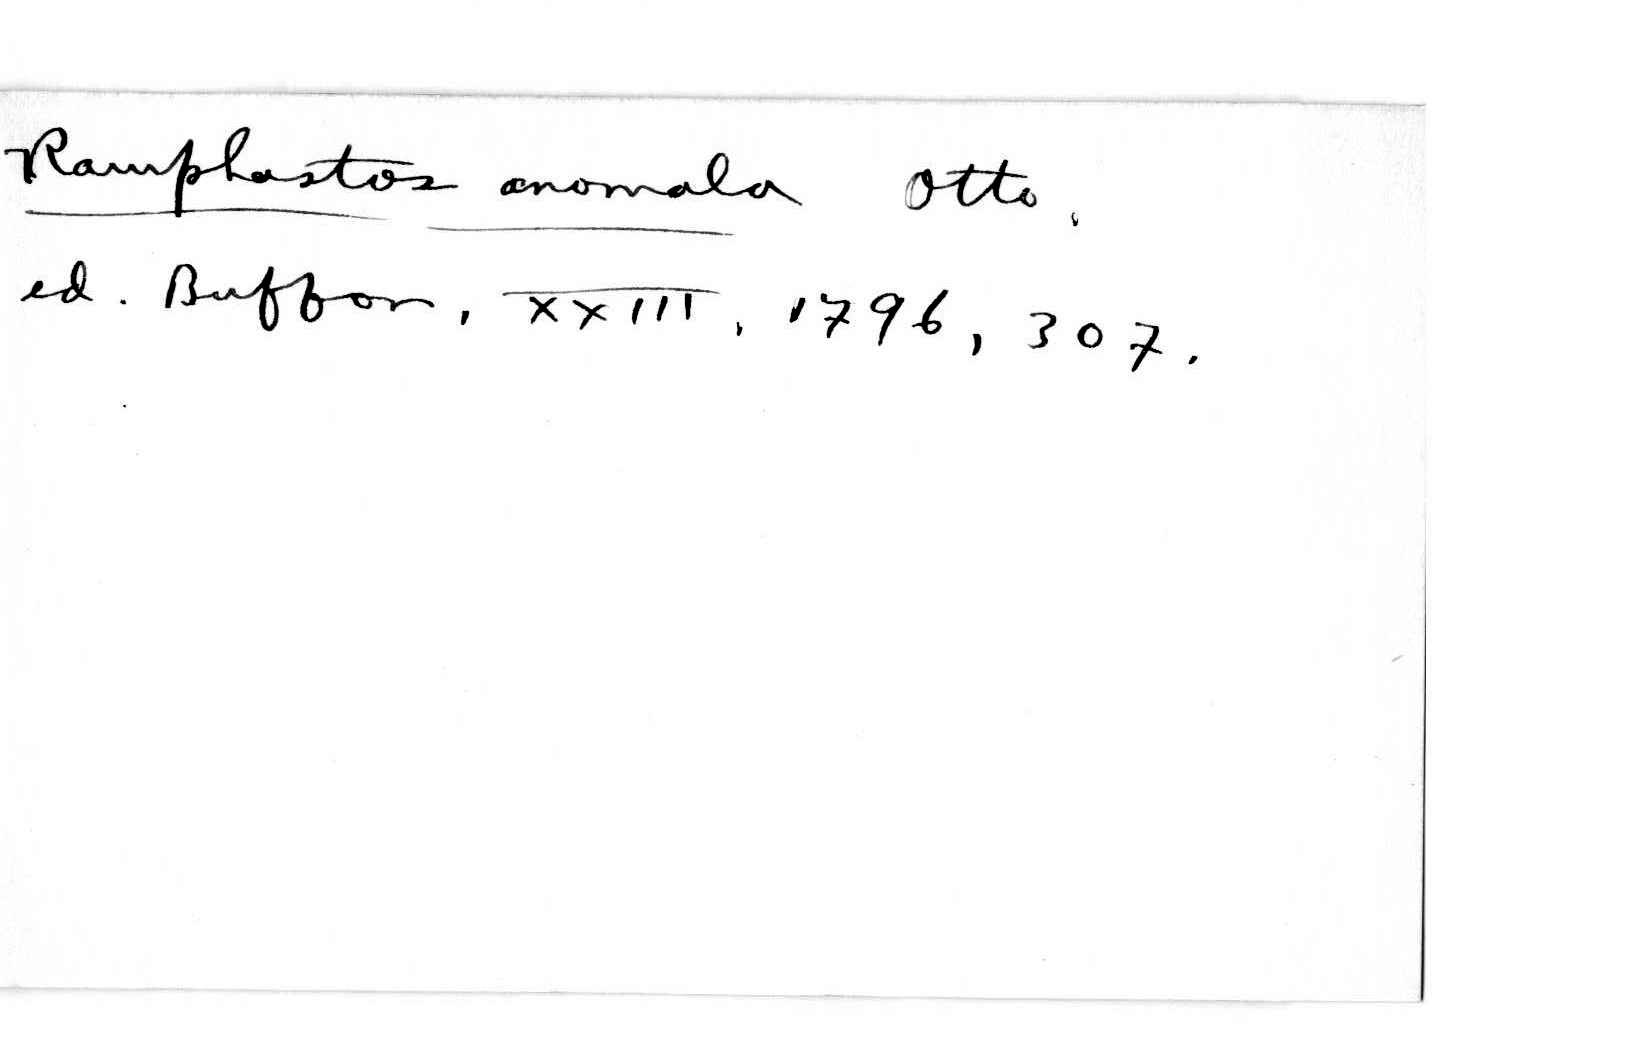 Ramphastos anomala Otto,
ed. Buffon, XXIII, 1796, 307.